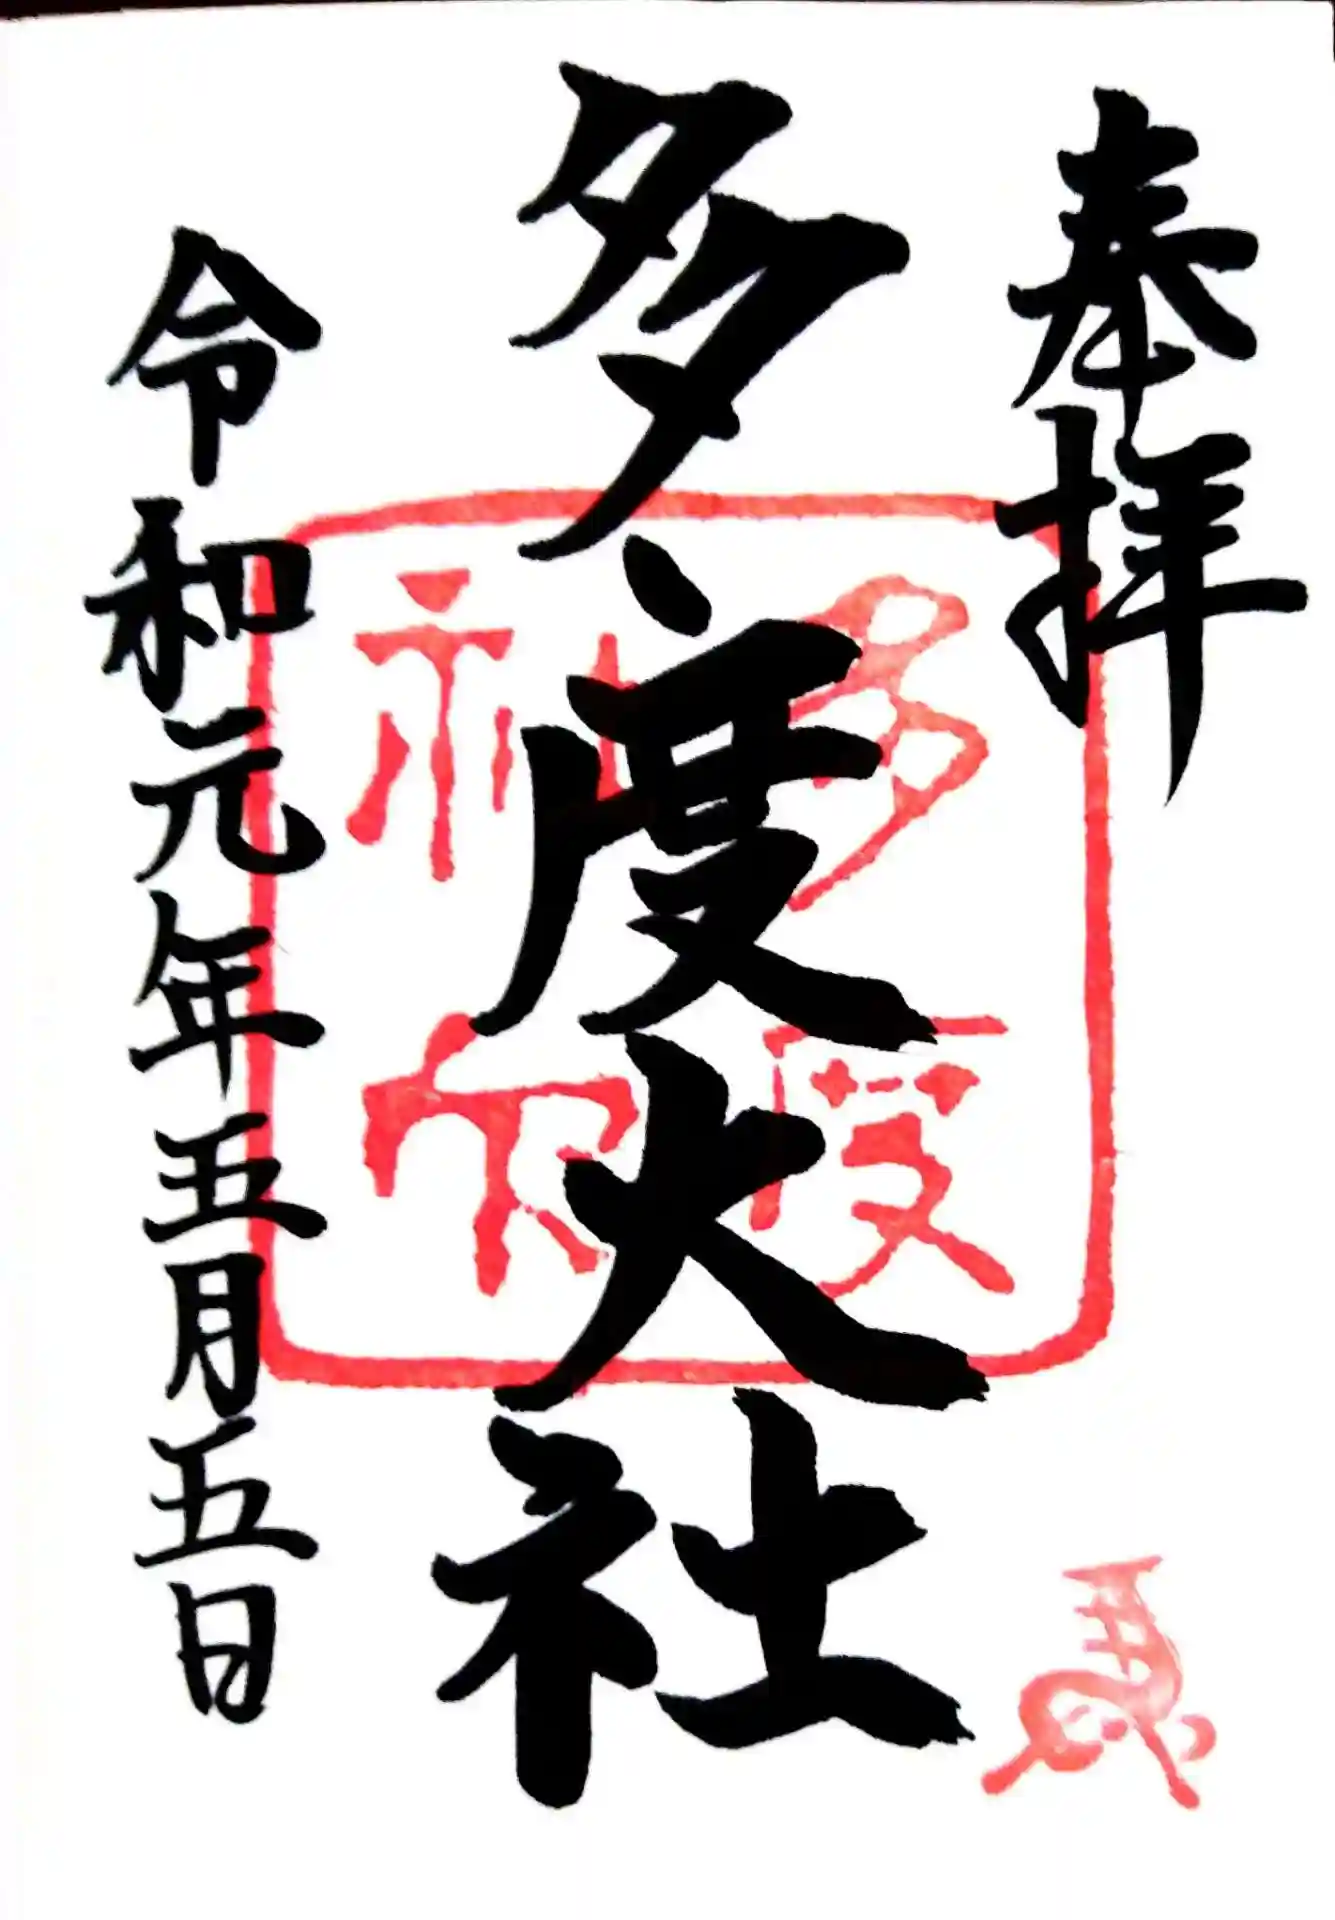 奉拝
多度大社
多度
神社
令和元年五月五日